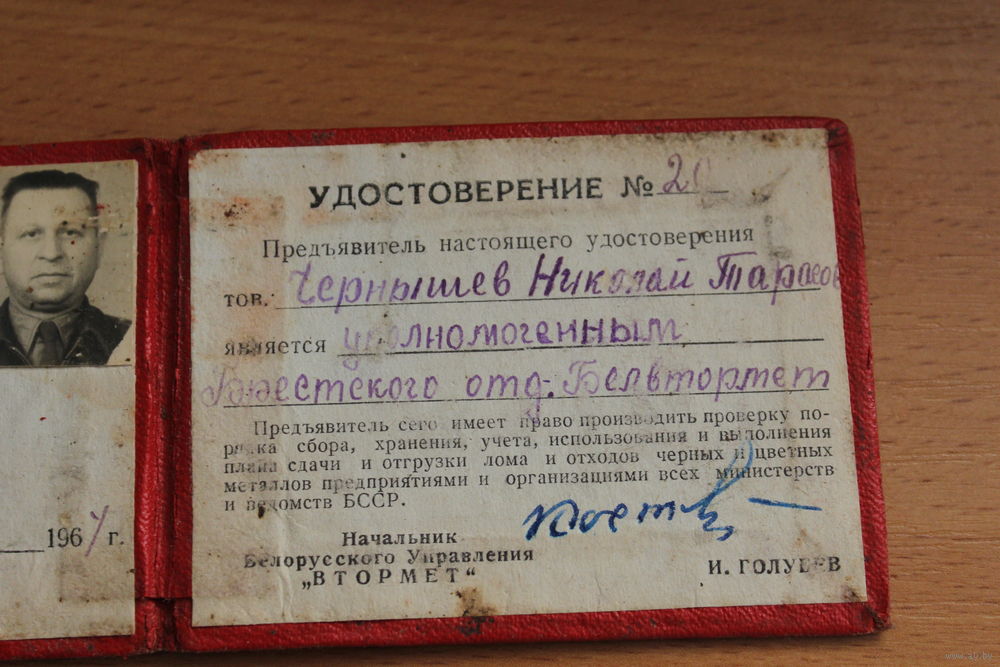 УДОСТОВЕРЕНИЕ № 20
Предъявитель настоящего удостоверения
тов. Чернышев Николай Тарасов
является уполномоченным
Брестского отд. Белвтормет
Предъявитель сего имеет право производить проверку по-
рядка сбора, хранения, учета, использования и выполнения
плана сдачи и отгрузки лома и отходов черных и цветных
металлов предприятиями и организациями всех министерств
и ведомств БССР.
1967 г.
Начальник
Белорусского Управления
„ВТОРМЕТ“
И. ГОЛУБЕВ
www.ay.by